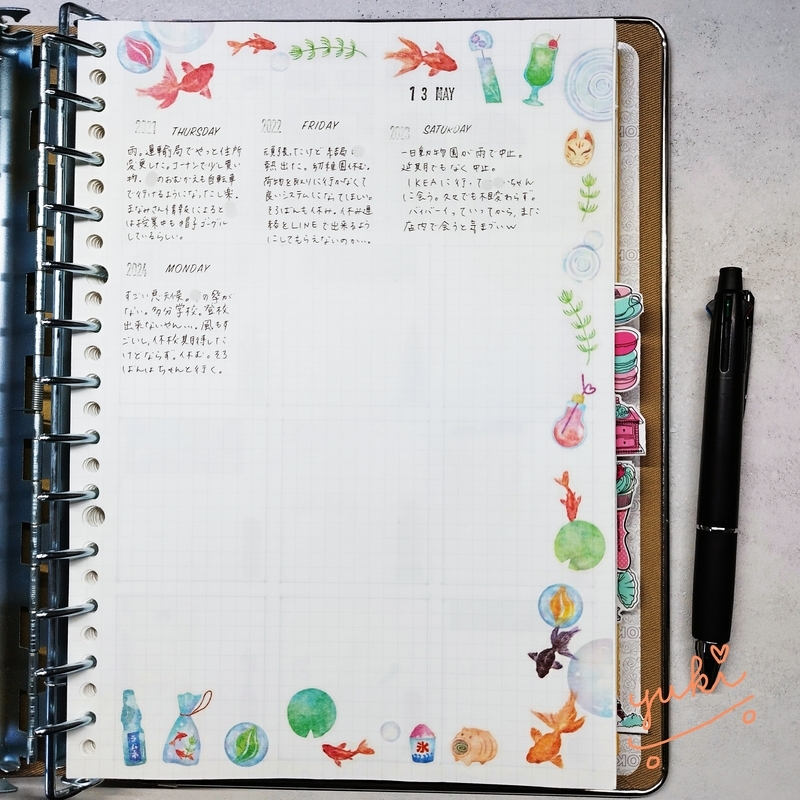 13 MAY
2021 THURSDAY
雨。運輸局でやっと住所
変更した。コーナンで少し買い
物。 のおむかえも自転車
で行けるようになったし楽。
まなみさん情報によると
は授業中も帽子ゴーグル
しているらしい。
2022 FRIDAY
頑張ったけど 結局
熱出た。幼稚園休む。
荷物を取りに行かなくて
良いシステムになってほしい。
そろばんも休み。休み連
絡をLINEで出来るよう
にしてもらえないのか…
2023 SATURDAY
一日動物園が雨で中止。
延期でもなく中止。
IKEAに行って ちゃん
に会う。久々でも不相変わらず。
バイバーイっていってから、また
店内で会うと気まづいw
2024 MONDAY
すごい悪天候。 の祭が
ない。多分学校。登校
出来ないやん…。風もす
ごいし、休校期待した
けどならず。休む。そろ
ばんはちゃんと行く。
ラムネ
氷
yuki